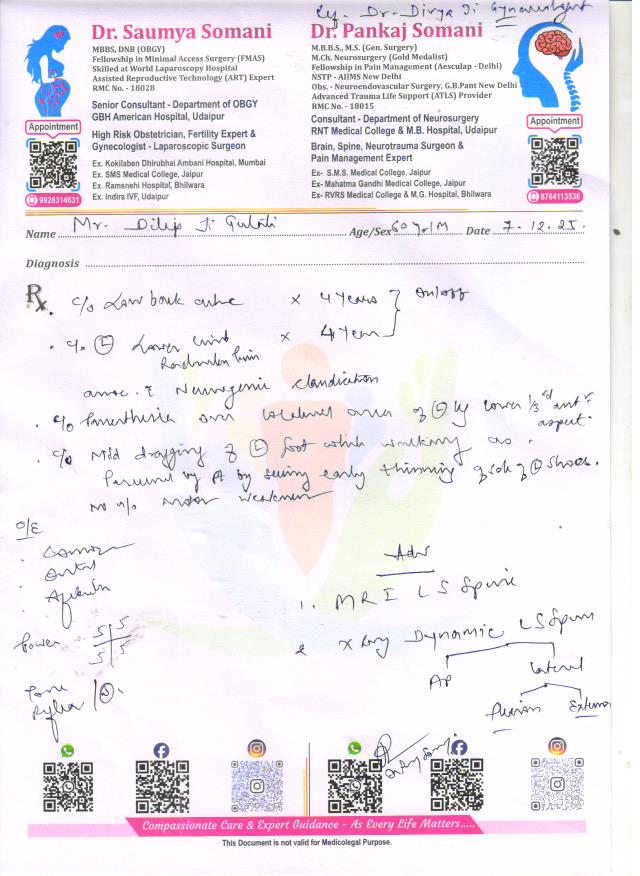 Ref. Dr. Divya Ji Gynaecologist
Dr. Saumya Somani
MBBS, DNB (OBGY)
Fellowship in Minimal Access Surgery (FMAS)
Skilled at World Laparoscopy Hospital
Assisted Reproductive Technology (ART) Expert
RMC No. - 18028
Senior Consultant - Department of OBGY
GBH American Hospital, Udaipur
High Risk Obstetrician, Fertility Expert &
Gynecologist - Laparoscopic Surgeon
Ex. Kokilaben Dhirubhai Ambani Hospital, Mumbai
Ex. SMS Medical College, Jaipur
Ex. Ramsnehi Hospital, Bhilwara
Ex. Indira IVF, Udaipur
Appointment
9928314631
Dr. Pankaj Somani
M.B.B.S., M.S. (Gen. Surgery)
M.Ch. Neurosurgery (Gold Medalist)
Fellowship in Pain Management (Aesculap - Delhi)
NSTP - AIIMS New Delhi
Obs. - Neuroendovascular Surgery, G.B.Pant New Delhi
Advanced Trauma Life Support (ATLS) Provider
RMC No. - 18015
Consultant - Department of Neurosurgery
RNT Medical College & M.B. Hospital, Udaipur
Brain, Spine, Neurotrauma Surgeon &
Pain Management Expert
Ex- S.M.S. Medical College, Jaipur
Ex- Mahatma Gandhi Medical College, Jaipur
Ex- RVRS Medical College & M.G. Hospital, Bhilwara
Appointment
8764113536
Name Mr. Dilip Ji Gulati Age/Sex 60 yr/M Date 7.12.25.
Diagnosis
Rx . c/o Low back ache x 4 Years } on/off
. c/o (L) Lower limb x 4 Year
Radicular Pain
assoc. c Neurogenic Claudication
. c/o Paresthesia over lateral area of (L) leg lower 1/3rd ant.
aspect.
. c/o Mild dragging of (L) foot while walking as
Perceived by Pt by seeing early thinning of sole of (L) Shoes.
No h/o Motor Weakness
O/E
. Conscious
. Oriented
. Afebrile
Power 5/5 5/5
Tone
Reflex (N).
Adv
1. MRI LS Spine
2 X Ray Dynamic LS Spine
AP Lateral
Flexion Extension
Compassionate Care & Expert Guidance - As Every Life Matters.....
This Document is not valid for Medicolegal Purpose.